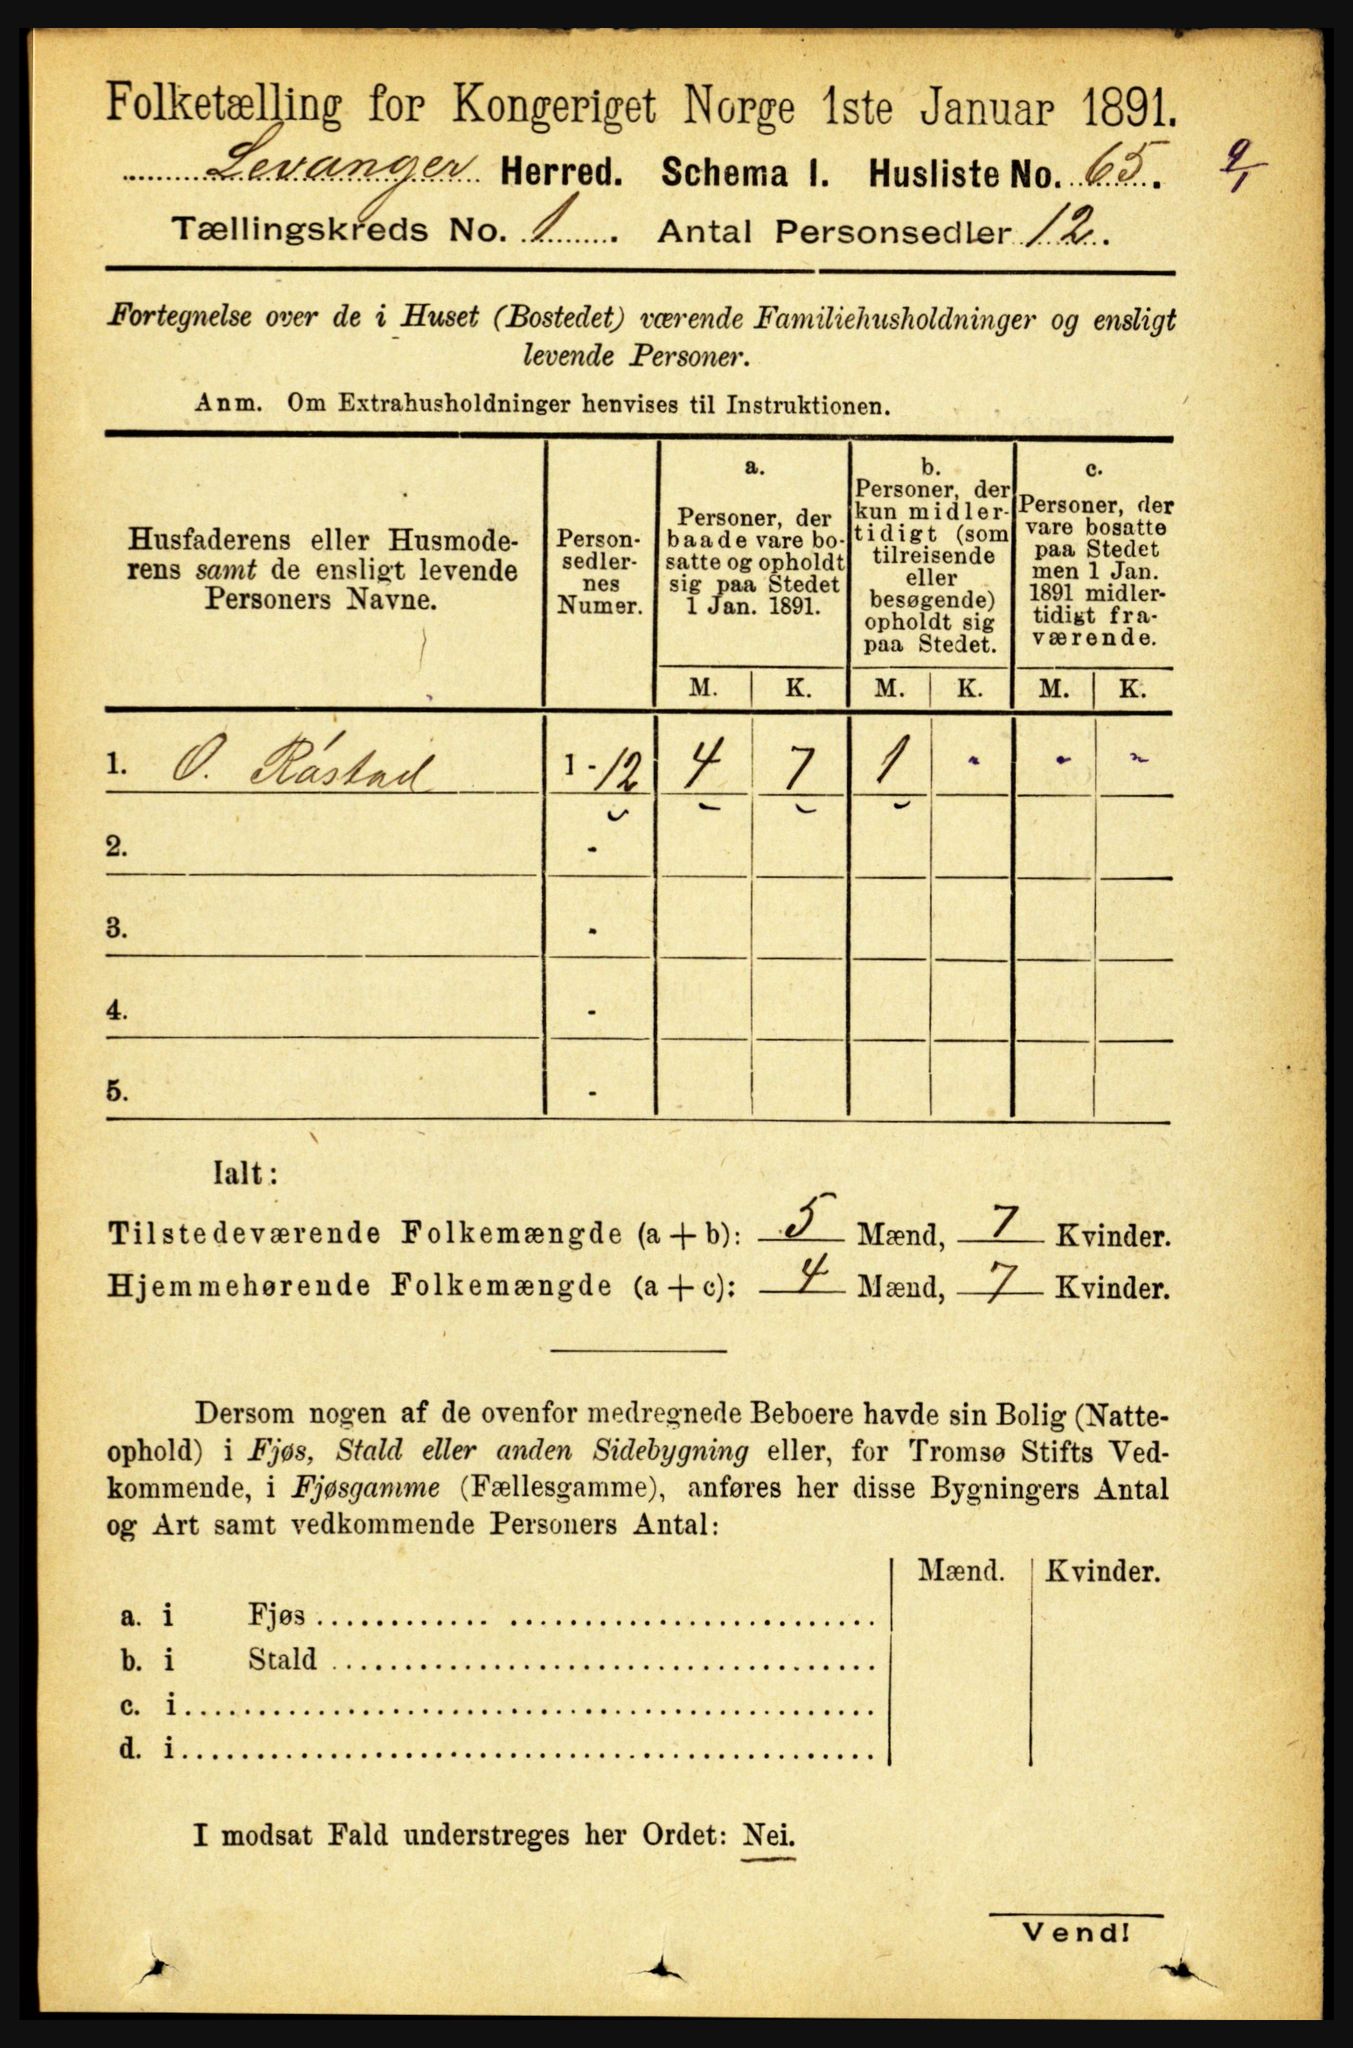 Folketælling for Kongeriget Norge 1ste Januar 1891.
Levanger Herred. Schema I. Husliste No. 65.
Tællingskreds No. 1. Antal Personsedler 12.
Fortegnelse over de i Huset (Bostedet) værende Familiehusholdninger og ensligt
levende Personer.
Anm. Om Extrahusholdninger henvises til Instruktionen.
Husfaderens eller Husmode-
rens samt de ensligt levende
Personers Navne.
Person-
sedler-
nes
Numer.
a.
Personer, der
baade vare bo-
satte og opholdt
sig paa Stedet
1 Jan. 1891.
b.
Personer, der
kun midler-
tidigt (som
tilreisende
eller
besøgende)
opholdt sig
paa Stedet.
c.
Personer, der
vare bosatte
paa Stedet
men 1 Jan.
1891 midler-
tidigt fra-
værende.
M. K. M. K. M. K.
1. O. Råstad 1 - 12 4 7 1 - - -
2. -
3. -
4. -
5. -
Ialt:
Tilstedeværende Folkemængde (a + b): 5 Mænd, 7 Kvinder.
Hjemmehørende Folkemængde (a + c): 4 Mænd, 7 Kvinder.
Dersom nogen af de ovenfor medregnede Beboere havde sin Bolig (Natte-
ophold) i Fjøs, Stald eller anden Sidebygning eller, for Tromsø Stifts Ved-
kommende, i Fjøsgamme (Fællesgamme), anføres her disse Bygningers Antal
og Art samt vedkommende Personers Antal:
Mænd. Kvinder.
a. i Fjøs
b. i Stald
c. i
d. i
I modsat Fald understreges her Ordet: Nei.
Vend!